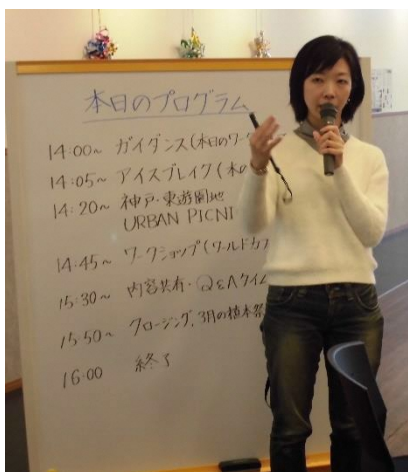 本日のプログラム
14:00~ ガイダンス(本日のワーク
14:05~ アイスブレイク(本の
14:20~ 神戸・東遊園地
URBAN PICNI
14:45~ ワークショップ(ワールドカフ
15:30~ 内容共有・Q&Aタイム
15:50~ クロージング, 3月の植本祭
16:00 終了